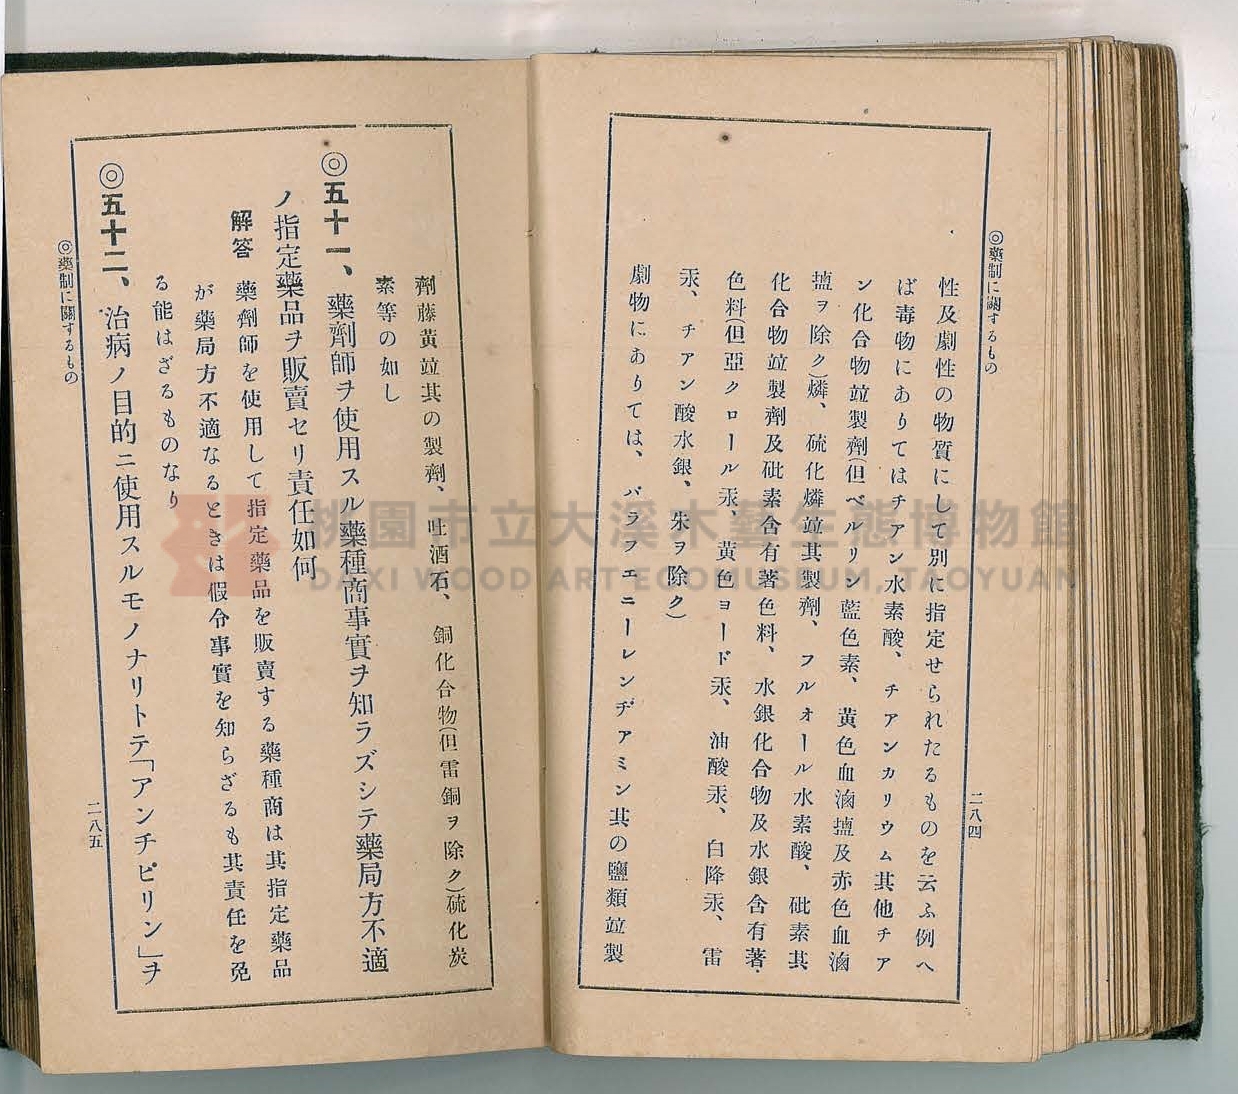 ◎藥制に關するもの
二八四
性及劇性の物質にして別に指定せられたるものを云ふ例へ
ば毒物にありてはチアン水素酸、チアンカリウム其他チア
ン化合物竝製劑(但ベルリン藍色素、黃色血滷鹽及赤色血滷
鹽ヲ除ク)燐、硫化燐竝其製劑、フルオール水素酸、砒素其
化合物竝製劑及砒素含有著色料、水銀化合物及水銀含有著
色料(但亞クロール汞、黃色ヨード汞、油酸汞、白降汞、雷
汞、チアン酸水銀、朱ヲ除ク)
劇物にありては、パラフエニーレンヂアミン其の鹽類竝製
劑藤黃竝其の製劑、吐酒石、銅化合物(但雷銅ヲ除ク)硫化炭
素等の如し
◎五十一、藥劑師ヲ使用スル藥種商事實ヲ知ラズシテ藥局方不適
ノ指定藥品ヲ販賣セリ責任如何
解答 藥劑師を使用して指定藥品を販賣する藥種商は其指定藥品
が藥局方不適なるときは假令事實を知らざるも其責任を免
る能はざるものなり
◎五十二、治病ノ目的ニ使用スルモノナリトテ「アンチピリン」ヲ
◎藥制に關するもの
二八五
桃園市立大溪木藝生態博物館
DAXI WOOD ART ECOMUSEUM, TAOYUAN